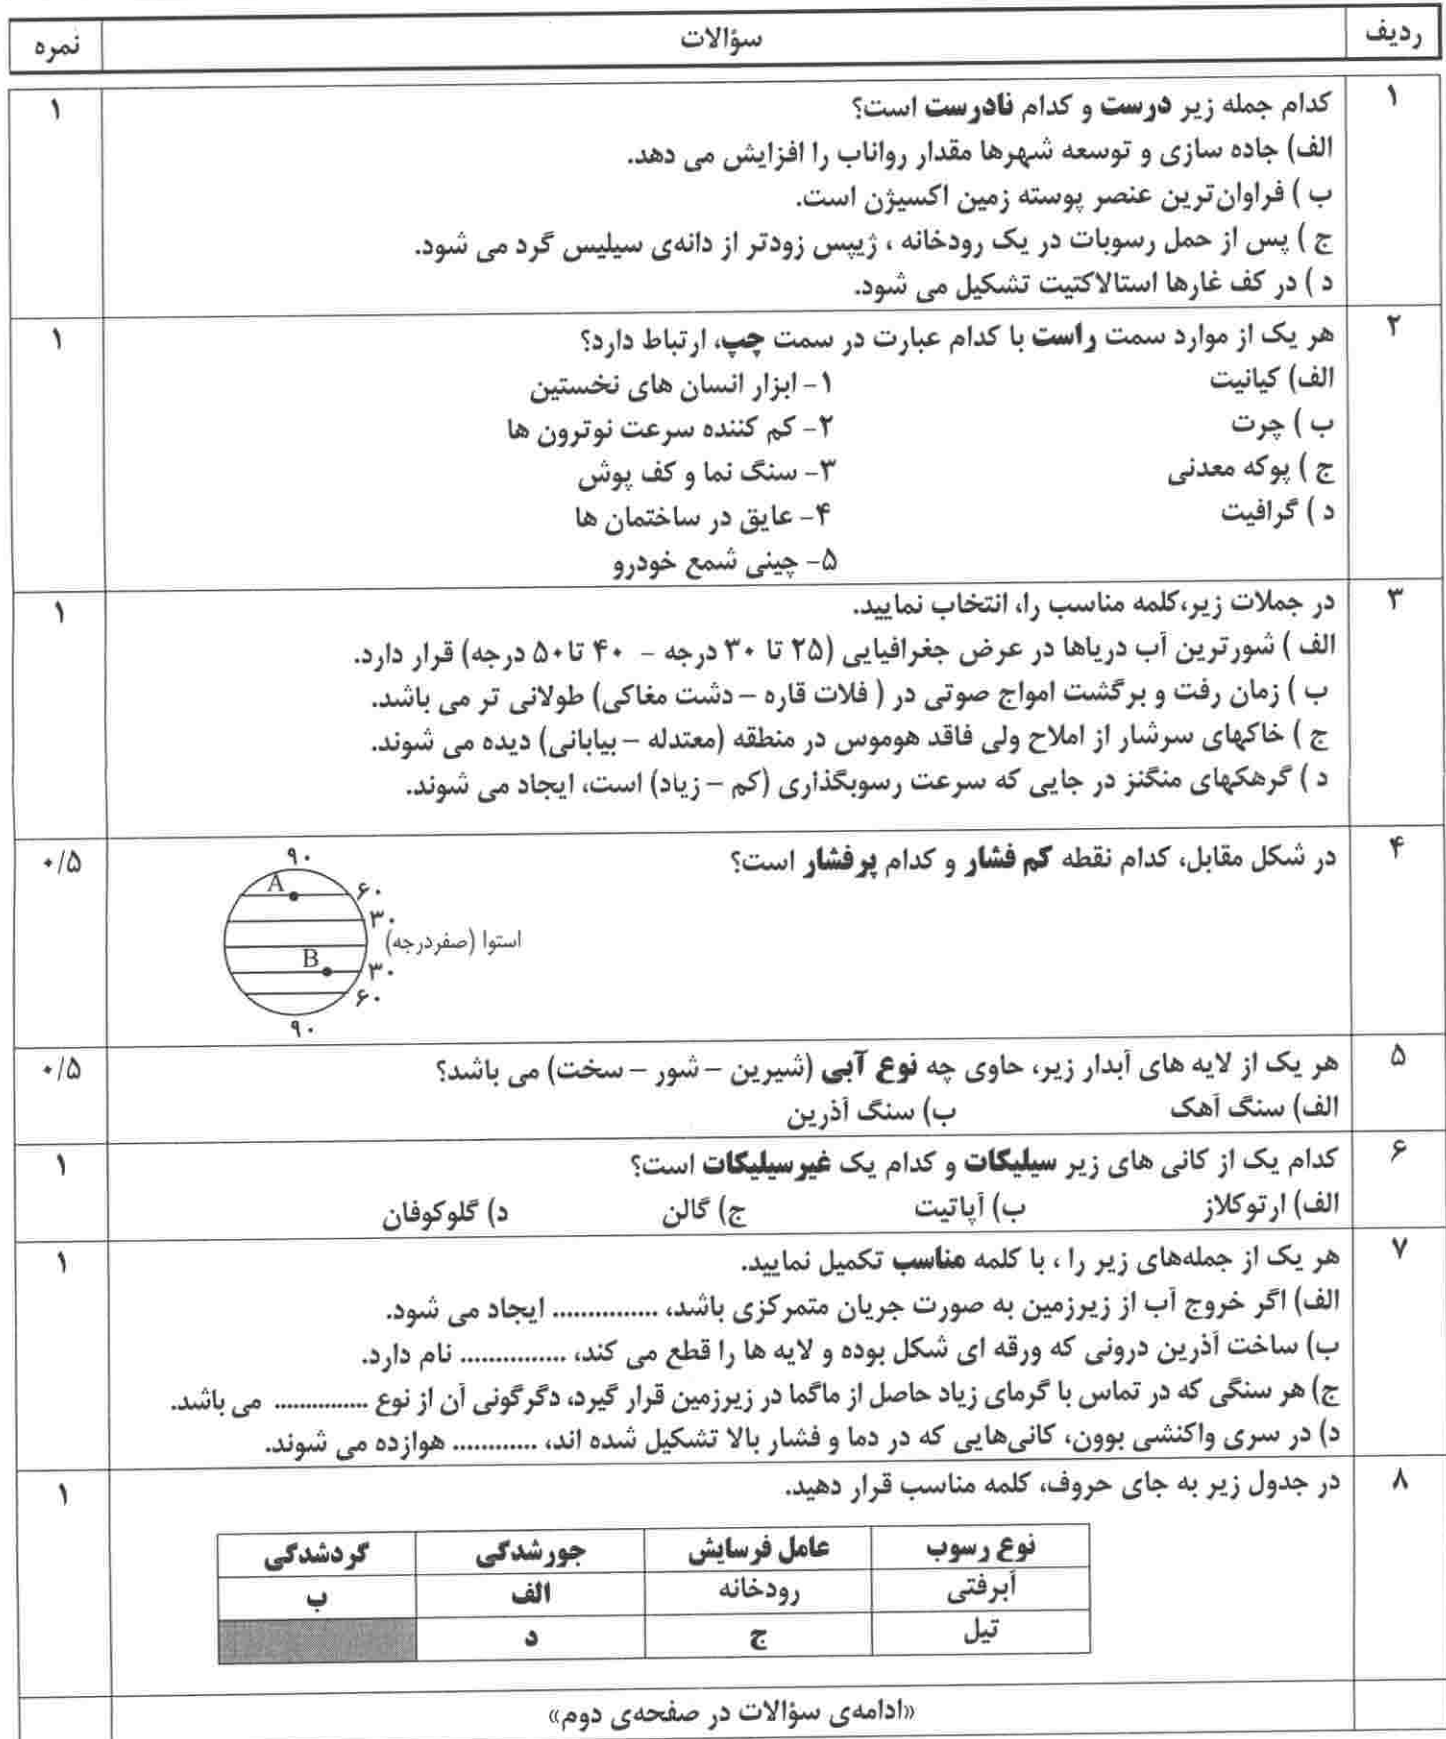 ردیف	سؤالات	نمره
۱	کدام جمله زیر درست و کدام نادرست است؟	۱
الف) جاده سازی و توسعه شهرها مقدار رواناب را افزایش می دهد.
ب ) فراوان‌ترین عنصر پوسته زمین اکسیژن است.
ج ) پس از حمل رسوبات در یک رودخانه ، ژیپس زودتر از دانه‌ی سیلیس گرد می شود.
د ) در کف غارها استالاکتیت تشکیل می شود.
۲	هر یک از موارد سمت راست با کدام عبارت در سمت چپ، ارتباط دارد؟	۱
الف) کیانیت	۱- ابزار انسان های نخستین
ب ) چرت	۲- کم کننده سرعت نوترون ها
ج ) پوکه معدنی	۳- سنگ نما و کف پوش
د ) گرافیت	۴- عایق در ساختمان ها
۵- چینی شمع خودرو
۳	در جملات زیر،کلمه مناسب را، انتخاب نمایید.	۱
الف ) شورترین آب دریاها در عرض جغرافیایی (۲۵ تا ۳۰ درجه - ۴۰ تا۵۰ درجه) قرار دارد.
ب ) زمان رفت و برگشت امواج صوتی در ( فلات قاره – دشت مغاکی) طولانی تر می باشد.
ج ) خاکهای سرشار از املاح ولی فاقد هوموس در منطقه (معتدله – بیابانی) دیده می شوند.
د ) گرهکهای منگنز در جایی که سرعت رسوبگذاری (کم – زیاد) است، ایجاد می شوند.
۴	در شکل مقابل، کدام نقطه کم فشار و کدام پرفشار است؟	۰/۵
۹۰
A
۶۰
۳۰
استوا (صفردرجه)
B
۳۰
۶۰
۹۰
۵	هر یک از لایه های آبدار زیر، حاوی چه نوع آبی (شیرین – شور – سخت) می باشد؟	۰/۵
الف) سنگ آهک	ب) سنگ آذرین
۶	کدام یک از کانی های زیر سیلیکات و کدام یک غیرسیلیکات است؟	۱
الف) ارتوکلاز	ب) آپاتیت	ج) گالن	د) گلوکوفان
۷	هر یک از جمله‌های زیر را ، با کلمه مناسب تکمیل نمایید.	۱
الف) اگر خروج آب از زیرزمین به صورت جریان متمرکزی باشد، ............... ایجاد می شود.
ب) ساخت آذرین درونی که ورقه ای شکل بوده و لایه ها را قطع می کند، ............... نام دارد.
ج) هر سنگی که در تماس با گرمای زیاد حاصل از ماگما در زیرزمین قرار گیرد، دگرگونی آن از نوع ............... می باشد.
د) در سری واکنشی بوون، کانی‌هایی که در دما و فشار بالا تشکیل شده اند، ............ هوازده می شوند.
۸	در جدول زیر به جای حروف، کلمه مناسب قرار دهید.	۱
نوع رسوب	عامل فرسایش	جورشدگی	گردشدگی
آبرفتی	رودخانه	الف	ب
تیل	ج	د
«ادامه‌ی سؤالات در صفحه‌ی دوم»